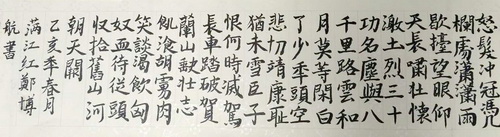 怒髮冲冠凭
欄處瀟瀟雨
歇擡望眼仰
天長嘯壯懷
激土烈三十
功名塵與八
千里路雲和
月莫等閑白
了少年頭空
悲切靖康耻
猶未雪臣子
恨何時滅駕
長車踏破賀
蘭山缺壯志
飢湌胡虜肉
笑談渴飲匈
奴血待從頭
收拾舊山河
朝天闕
乙亥年春月
满江红鄭博
航書